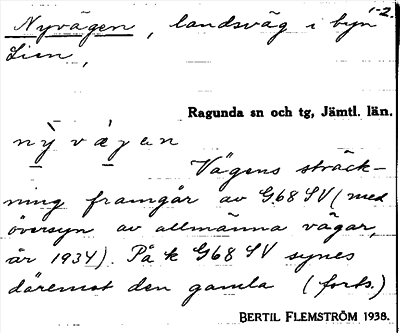 Nyvägen, landsväg i byn 1-2.
Lien,
Ragunda sn och tg, Jämtl. län.
nỳ vä̀gen
Vägens sträck-
ning framgår av G68 SV (med
översyn av allmänna vägar,
år 1934). På k G68 SV synes
däremot den gamla (forts.)
BERTIL FLEMSTRÖM 1938.